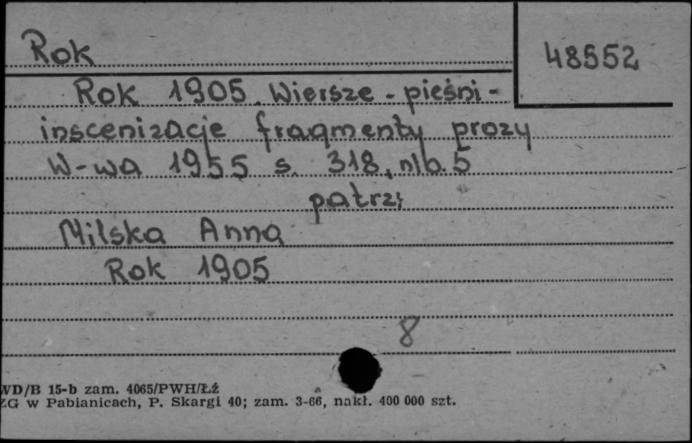 Rok
48552
Rok 1905. Wiersze - pieśni -
inscenizacje fragmenty prozy
W-wa 1955 s. 318, nlb. 5
patrz:
Milska Anna
Rok 1905
8
WD/B 15-b zam. 4065/PWH/ŁŹ
ZG w Pabianicach, P. Skargi 40; zam. 3-66, nakł. 400 000 szt.